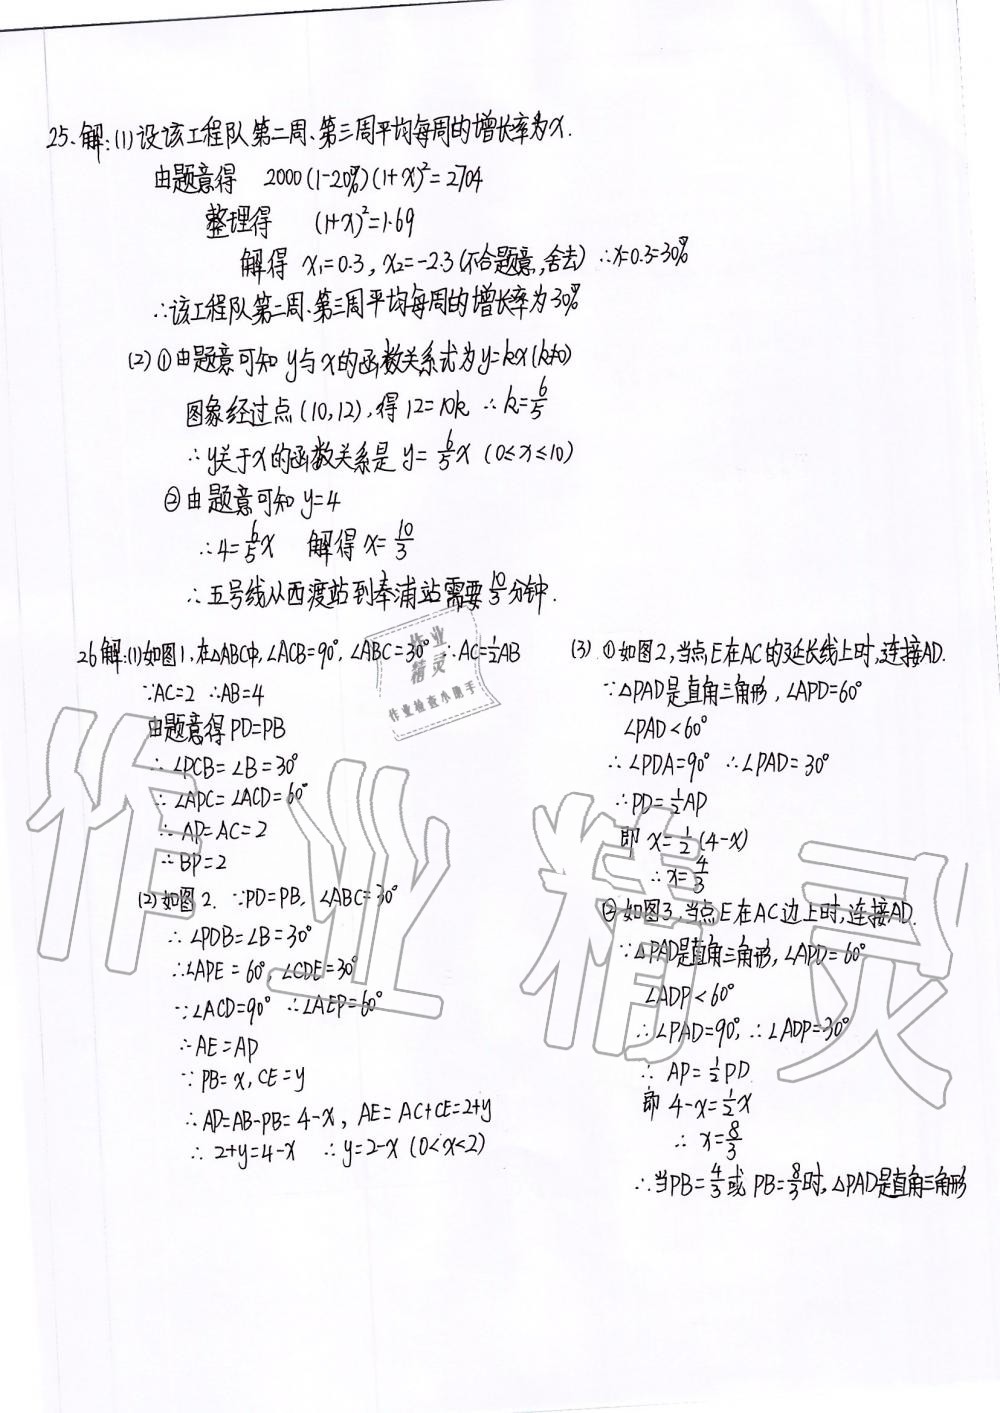 25、解:(1)设该工程队第二周、第三周平均每周的增长率为x.
由题意得 2000(1-20%)(1+x)²=2704
整理得 (1+x)²=1.69
解得 x₁=0.3, x₂=-2.3(不合题意,舍去) ∴x=0.3=30%
∴该工程队第二周、第三周平均每周的增长率为30%
(2)①由题意可知 y与x的函数关系式为y=kx(k≠0)
图象经过点(10,12),得12=10k ∴k=6/5
∴y关于x的函数关系是 y=6/5x (0≤x≤10)
②由题意可知 y=4
∴4=6/5x 解得 x=10/3
∴五号线从西渡站到奉浦站需要10/3分钟.
26解:(1)如图1,在△ABC中,∠ACB=90°,∠ABC=30° ∴AC=1/2AB
∵AC=2 ∴AB=4
由题意得PD=PB
∴∠PCB=∠B=30°
∴∠APC=∠ACD=60°
∴AP=AC=2
∴BP=2
(2)如图2. ∵PD=PB, ∠ABC=30°
∴∠PDB=∠B=30°
∴∠APE=60°,∠CDE=30°
∵∠ACD=90° ∴∠AEP=60°
∴AE=AP
∵PB=x,CE=y
∴AP=AB-PB=4-x, AE=AC+CE=2+y
∴2+y=4-x ∴y=2-x (0<x<2)
(3)①如图2,当点E在AC的延长线上时,连接AD.
∵△PAD是直角三角形,∠APD=60°
∠PAD<60°
∴∠PDA=90° ∴∠PAD=30°
∴PD=1/2AP
即 x=1/2(4-x)
∴x=4/3
②如图3,当点E在AC边上时,连接AD.
∵△PAD是直角三角形,∠APD=60°
∠ADP<60°
∴∠PAD=90°,∴∠ADP=30°
∴AP=1/2PD
即 4-x=1/2x
∴x=8/3
∴当PB=4/3或PB=8/3时,△PAD是直角三角形
作业
精灵
作业检查小助手
作业精灵